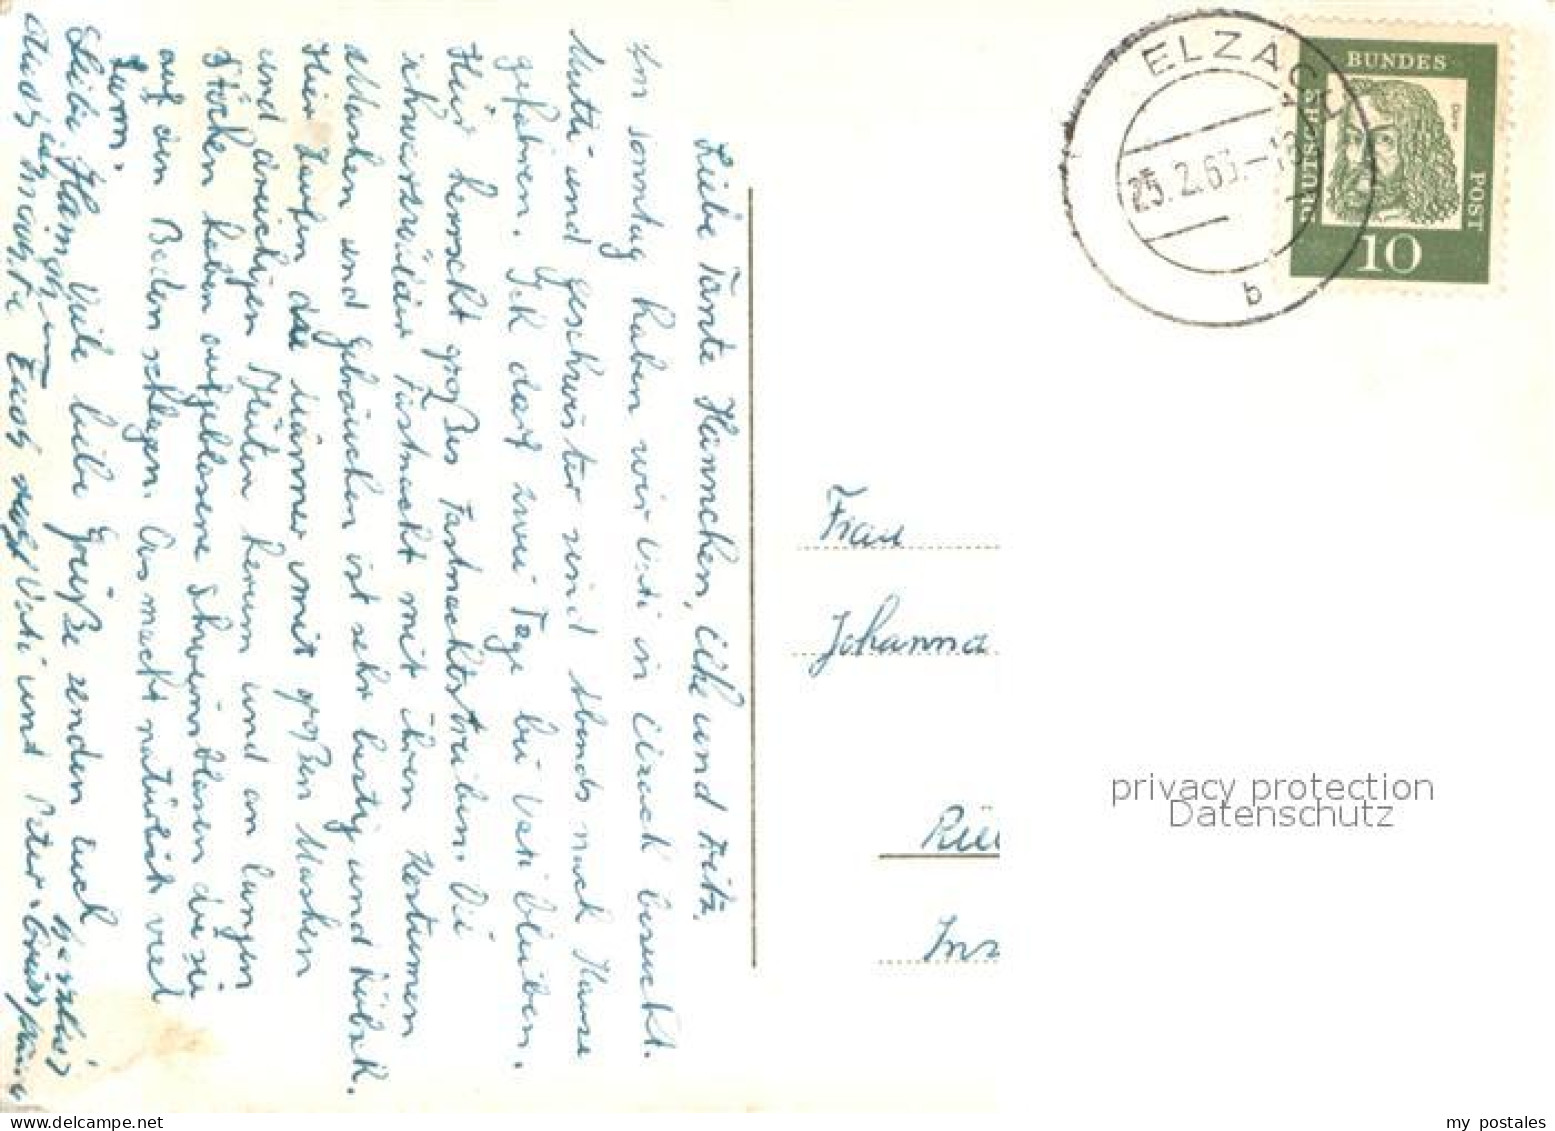 Liebe Tante Hännchen, Elke und Fritz.
Am Sonntag haben wir Vati in Elzach besucht.
Mutti und Geschwister sind abends nach Hause
gefahren. Ich darf zwei Tage bei Vati bleiben.
Hier herrscht großes Fastnachtstreiben. Die
schwarzwälder Fastnacht mit ihren Kostümen
Masken und Gebräuchen ist sehr lustig und hübsch.
Hier laufen die Männer mit großen Masken
und dreieckigen Hüten herum und an langen
Stöcken haben aufgeblasene Schweinsblasen die sie
auf den Boden schlagen. Das macht natürlich viel
Lärm.
Viele liebe Grüße senden Euch
Vati und Peter
ELZACH
25.2.63.-18
b
BUNDES
POST
DEUTSCHE
Dürer
10
Frau
Johanna
privacy protection
Datenschutz
my postales